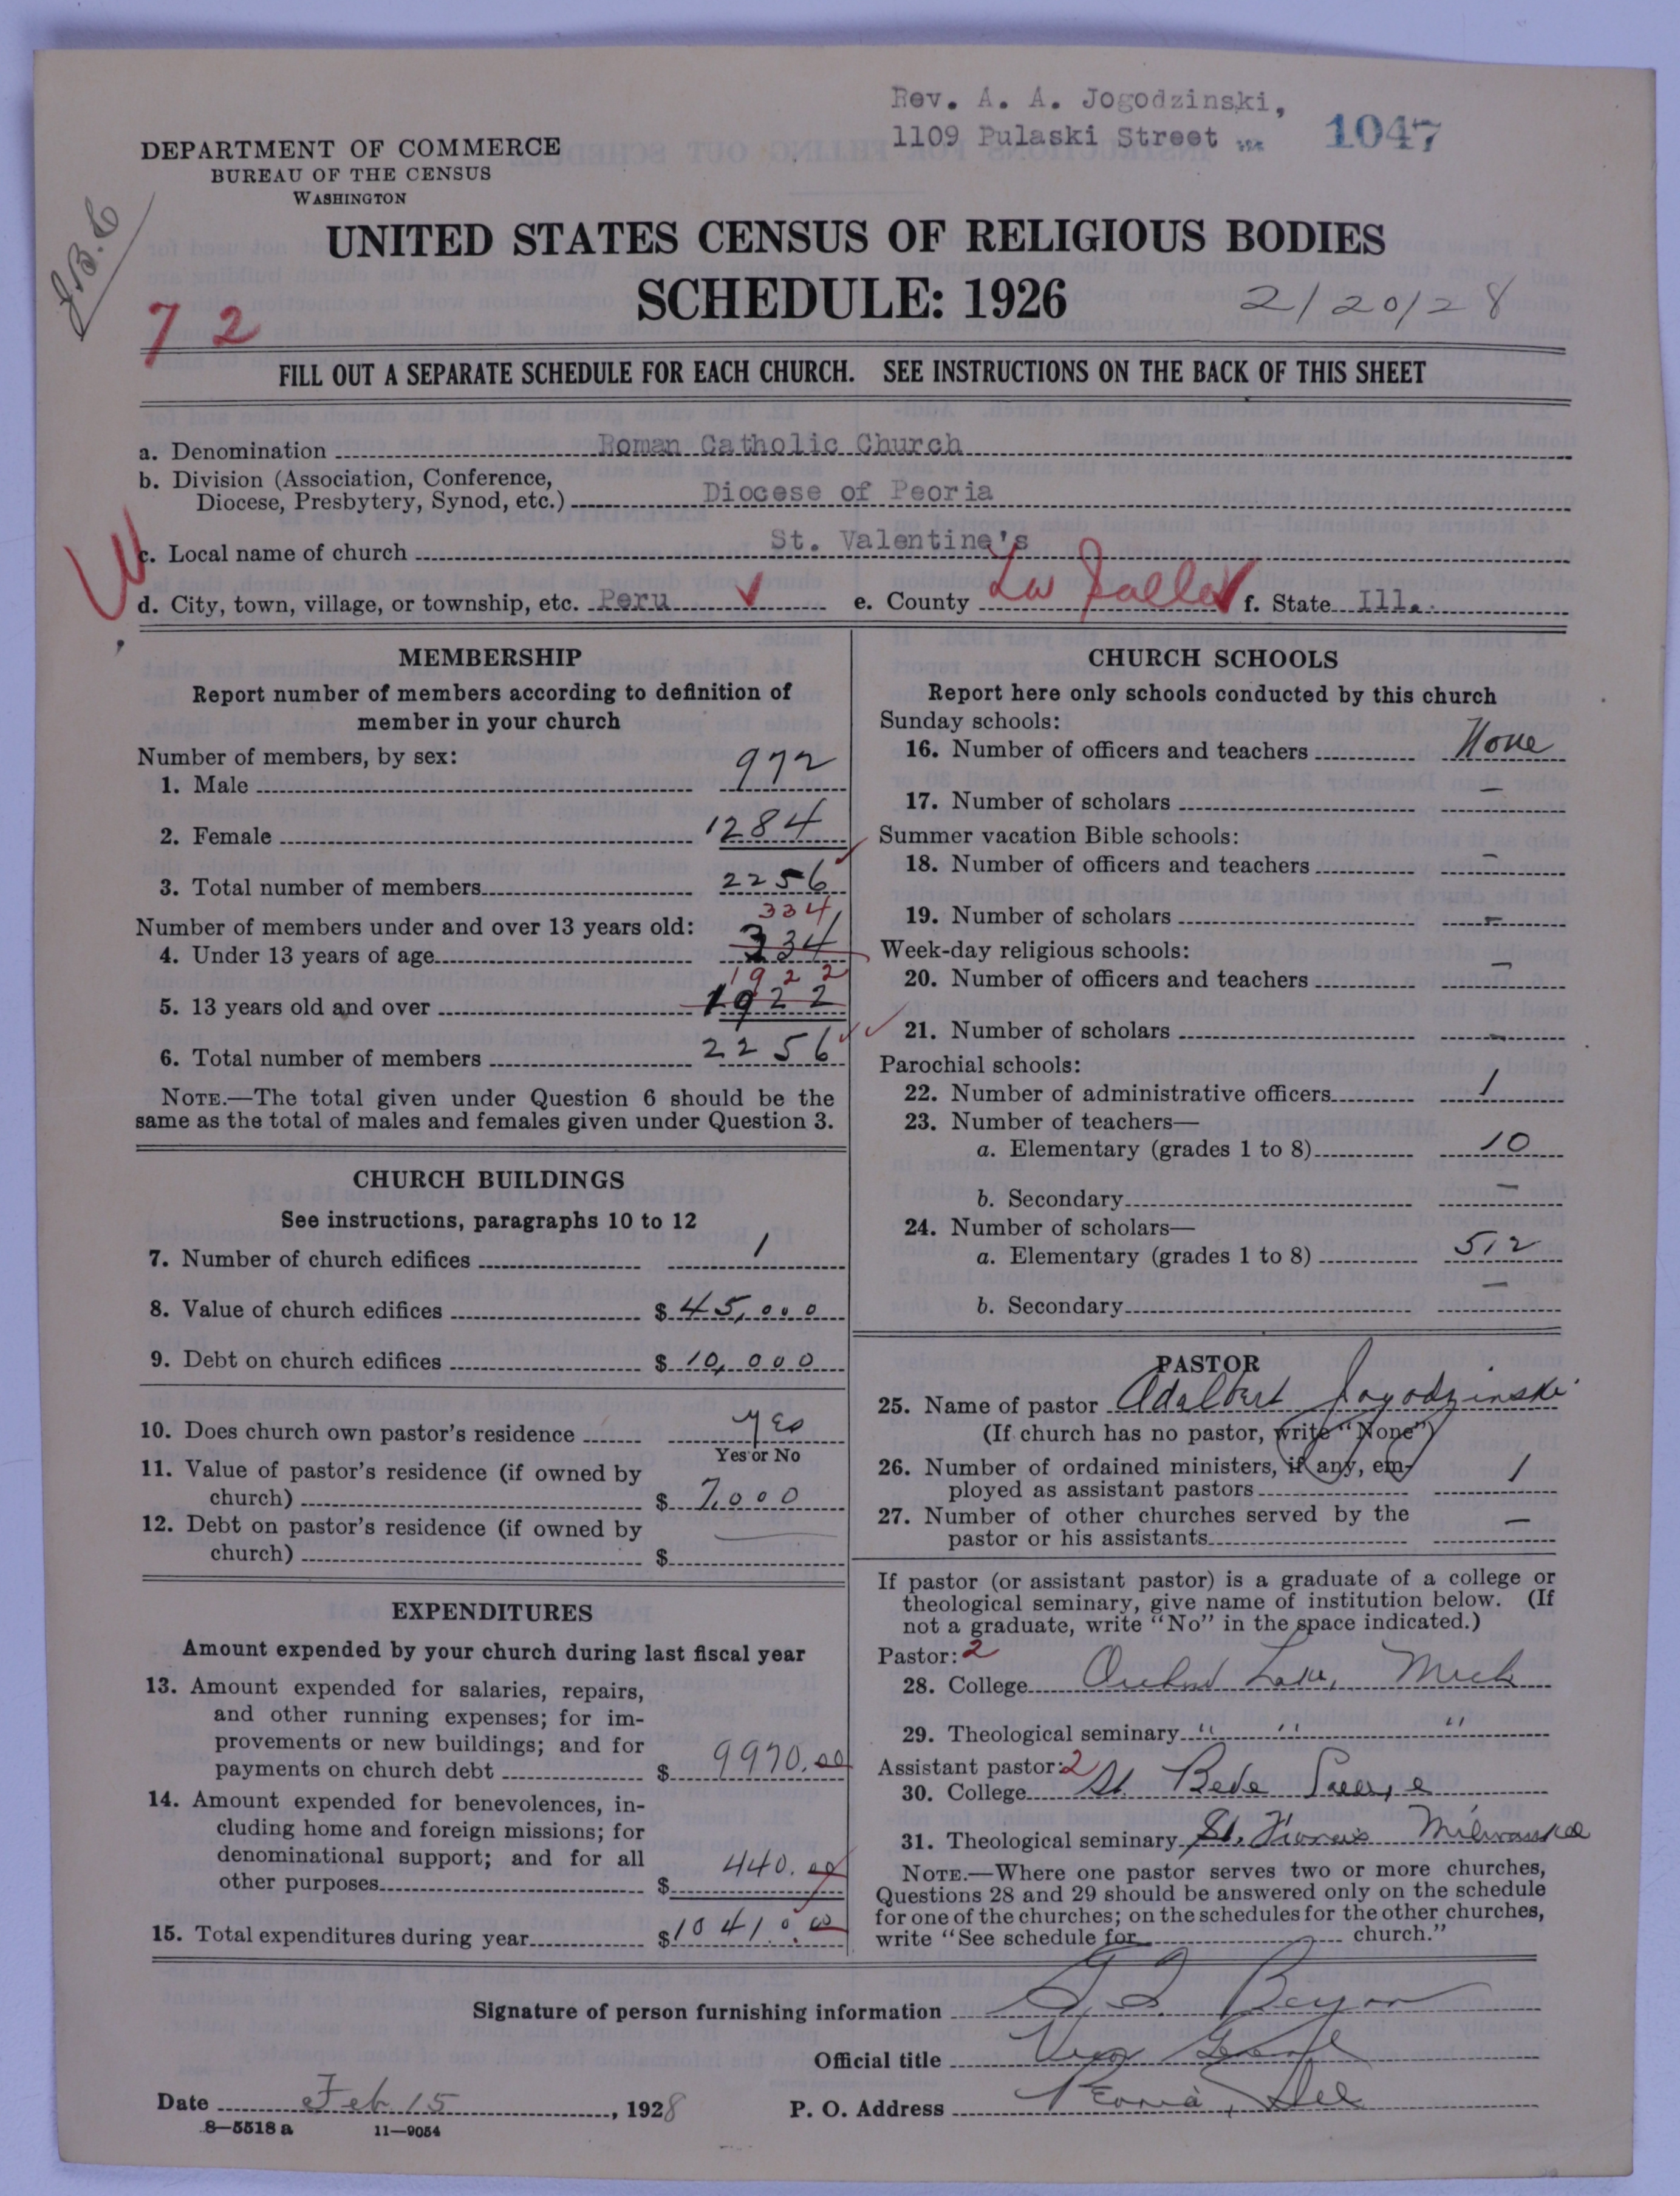 Rev. A. A. Jogodzinski,
1109 Pulaski Street
1047
DEPARTMENT OF COMMERCE
BUREAU OF THE CENSUS
WASHINGTON
J.B.C
UNITED STATES CENSUS OF RELIGIOUS BODIES
SCHEDULE: 1926
2/20/28
72
FILL OUT A SEPARATE SCHEDULE FOR EACH CHURCH. SEE INSTRUCTIONS ON THE BACK OF THIS SHEET
a. Denomination Roman Catholic Church
b. Division (Association, Conference,
Diocese, Presbytery, Synod, etc.) Diocese of Peoria
W
c. Local name of church St. Valentine's
d. City, town, village, or township, etc. Peru e. County La Salle f. State Ill.
MEMBERSHIP
Report number of members according to definition of
member in your church
Number of members, by sex:
1. Male 972
2. Female 1284
3. Total number of members 2256
334
Number of members under and over 13 years old:
4. Under 13 years of age 334
1922
5. 13 years old and over 1922
6. Total number of members 2256
NOTE.—The total given under Question 6 should be the
same as the total of males and females given under Question 3.
CHURCH BUILDINGS
See instructions, paragraphs 10 to 12
7. Number of church edifices 1
8. Value of church edifices $ 45,000
9. Debt on church edifices $ 10,000
10. Does church own pastor's residence yes
Yes or No
11. Value of pastor's residence (if owned by
church) $ 7,000
12. Debt on pastor's residence (if owned by
church) $ —
EXPENDITURES
Amount expended by your church during last fiscal year
13. Amount expended for salaries, repairs,
and other running expenses; for im-
provements or new buildings; and for
payments on church debt $ 9970.00
14. Amount expended for benevolences, in-
cluding home and foreign missions; for
denominational support; and for all
other purposes $ 440.00
15. Total expenditures during year $ 10410.00
CHURCH SCHOOLS
Report here only schools conducted by this church
Sunday schools:
16. Number of officers and teachers None
17. Number of scholars —
Summer vacation Bible schools:
18. Number of officers and teachers —
19. Number of scholars —
Week-day religious schools:
20. Number of officers and teachers —
21. Number of scholars —
Parochial schools:
22. Number of administrative officers 1
23. Number of teachers—
a. Elementary (grades 1 to 8) 10
b. Secondary —
24. Number of scholars—
a. Elementary (grades 1 to 8) 512
b. Secondary —
PASTOR
25. Name of pastor Adalbert Jagodzinski
(If church has no pastor, write "None")
26. Number of ordained ministers, if any, em-
ployed as assistant pastors 1
27. Number of other churches served by the
pastor or his assistants —
If pastor (or assistant pastor) is a graduate of a college or
theological seminary, give name of institution below. (If
not a graduate, write "No" in the space indicated.)
Pastor: 2
28. College Orchard Lake, Mich
29. Theological seminary " " "
Assistant pastor: 2
30. College St. Bede
31. Theological seminary St. Francis Milwaukee
NOTE.—Where one pastor serves two or more churches,
Questions 28 and 29 should be answered only on the schedule
for one of the churches; on the schedules for the other churches,
write "See schedule for church."
Signature of person furnishing information
Official title
Date Feb 15, 1928 P. O. Address Peoria, Ill
8—5518 a 11—9054